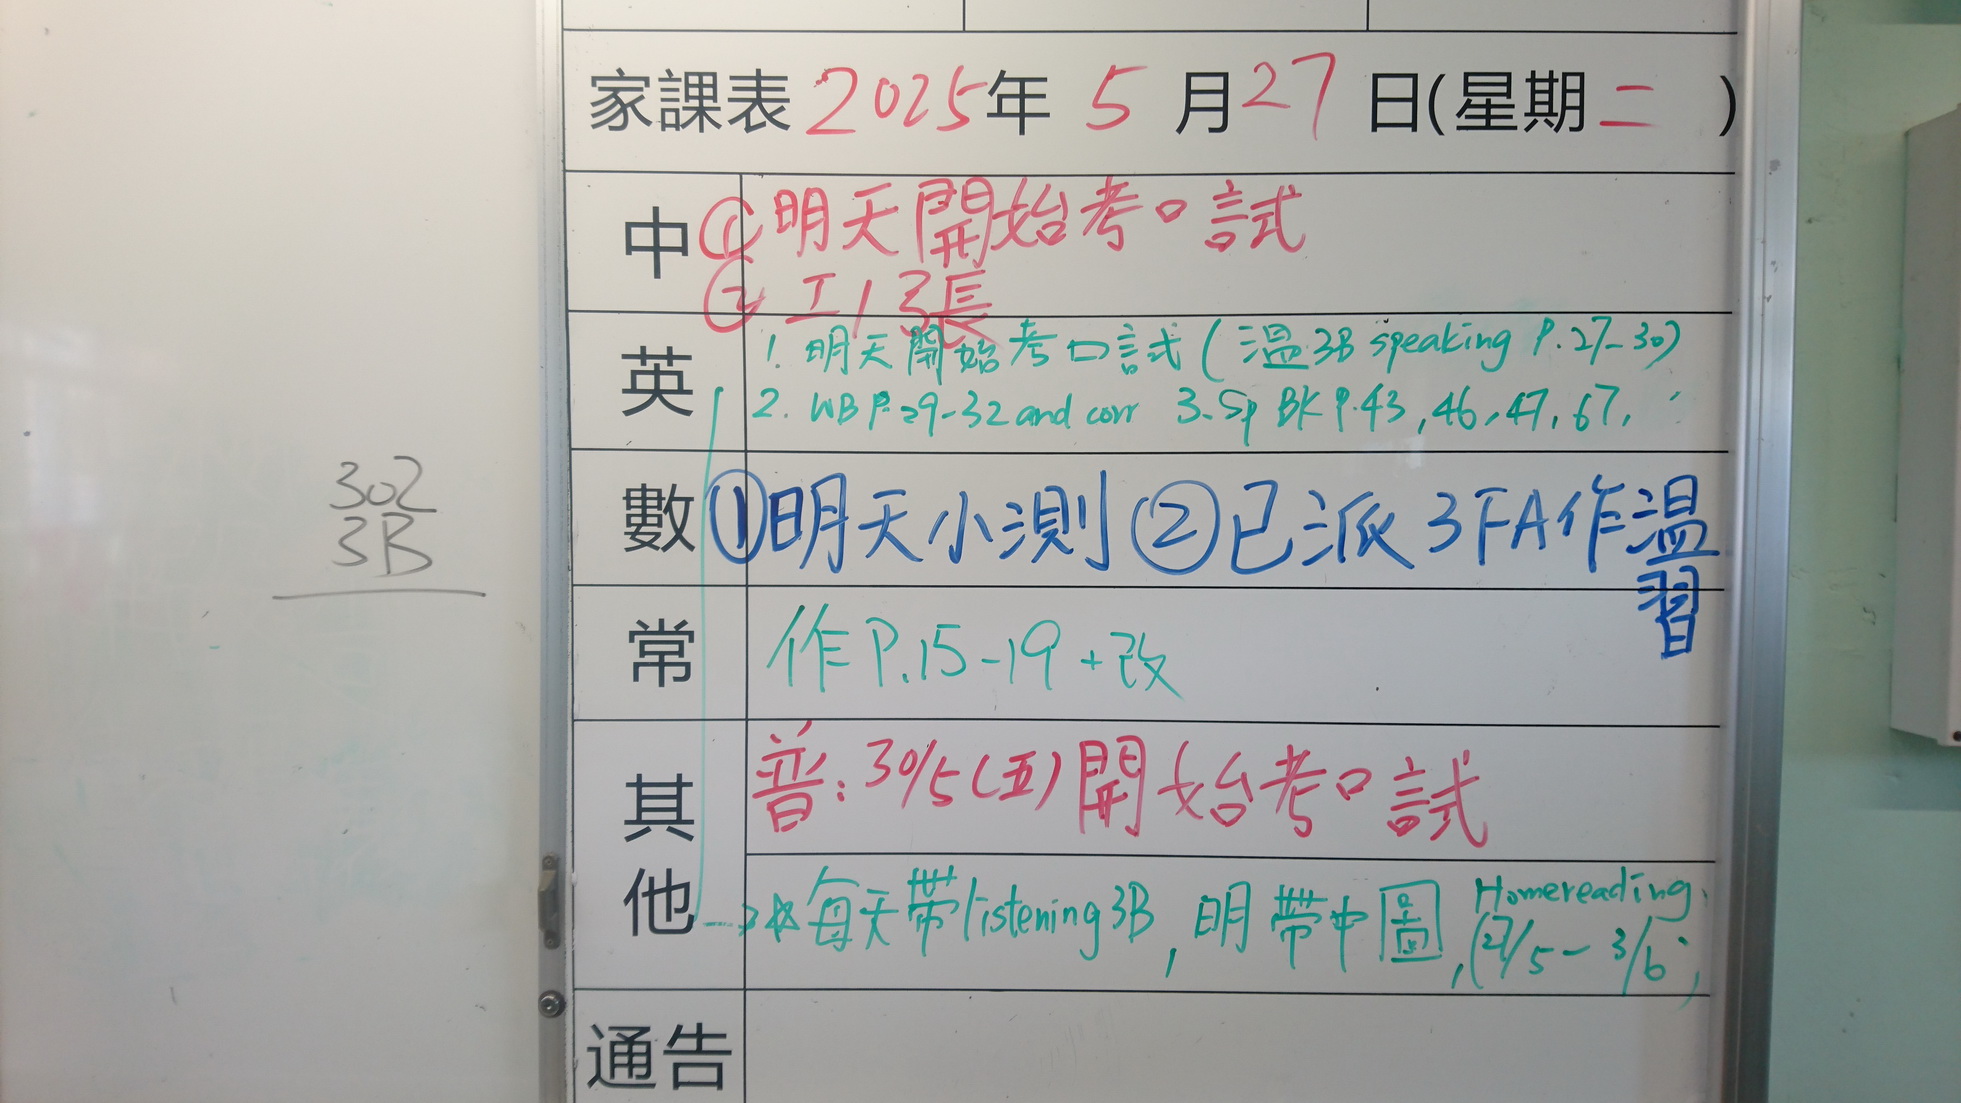 302
3B
家課表 2025年 5 月 27 日(星期二 )
中 ①明天開始考口試
② 工13張
英 1. 明天開始考口試(溫3B speaking P.27-30)
2. WB P.29-32 and corr 3. Sp BK P.43, 46, 47, 67,
數 ①明天小測 ②已派3FA作溫習
常 作P.15-19+改
其他 普:30/5(五)開始考口試
→☆每天帶listening 3B, 明帶中圖, Homereading
(27/5-3/6)
通告